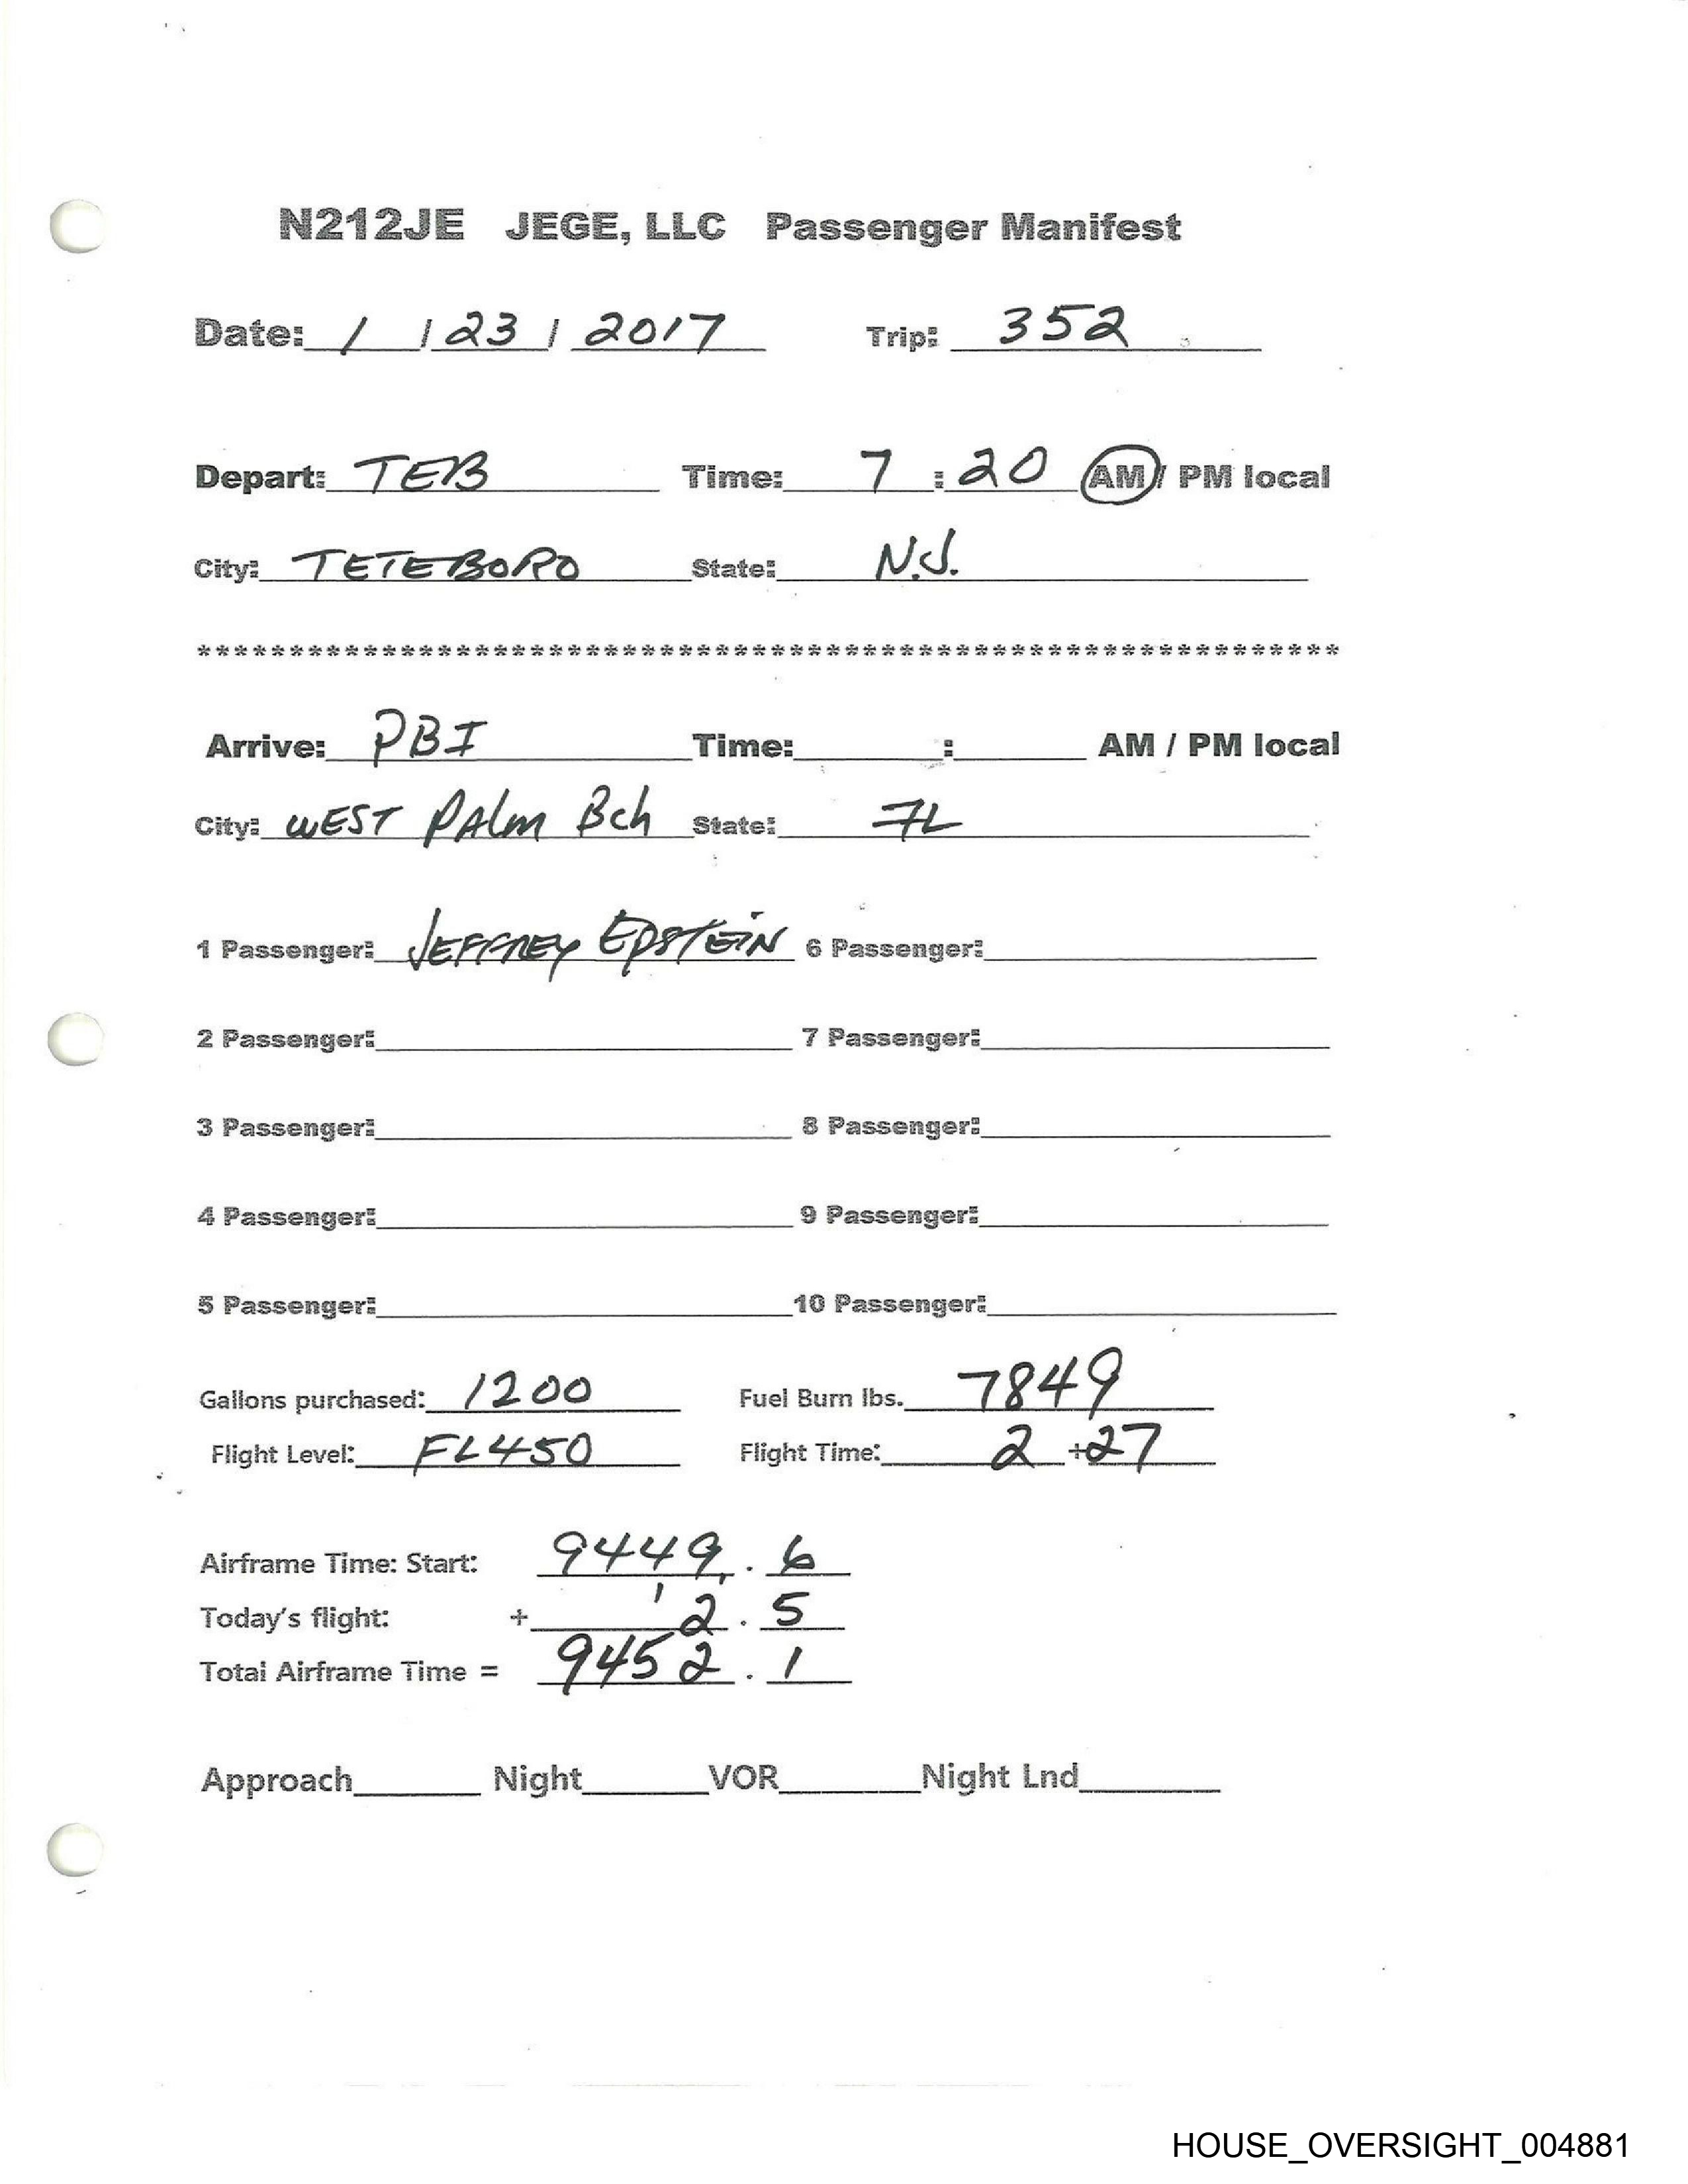 N212JE JEGE, LLC Passenger Manifest
Date: 1 / 23 / 2017 Trip: 352
Depart: TEB Time: 7 : 20 AM / PM local
City: TETEBORO State: N.J.
**************************************************************
Arrive: PBI Time: : AM / PM local
City: WEST PALM Bch State: FL
1 Passenger: JEFFREY EPSTEIN 6 Passenger:
2 Passenger: 7 Passenger:
3 Passenger: 8 Passenger:
4 Passenger: 9 Passenger:
5 Passenger: 10 Passenger:
Gallons purchased: 1200 Fuel Burn lbs. 7849
Flight Level: FL450 Flight Time: 2 + 27
Airframe Time: Start: 9449 . 6
Today's flight: + 2 . 5
Total Airframe Time = 9452 . 1
Approach Night VOR Night Lnd
HOUSE_OVERSIGHT_004881